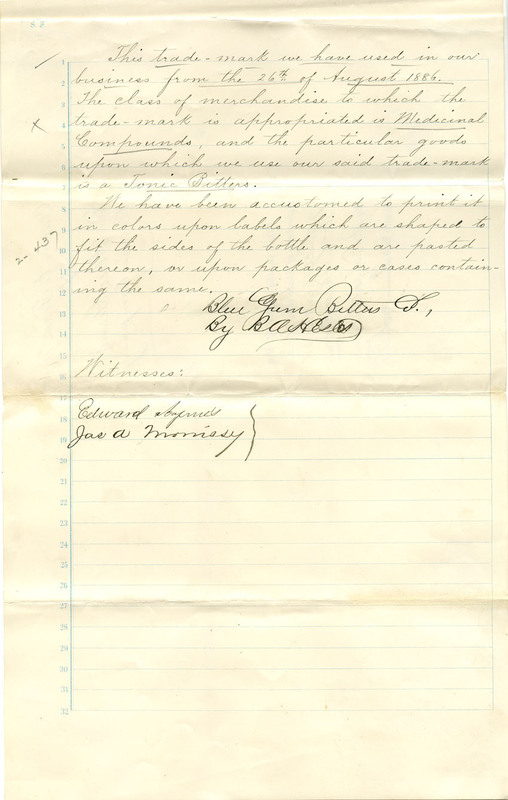 This trade-mark we have used in our
business from the 26th of August 1886.
The class of merchandise to which the
trade-mark is appropriated is Medicinal
Compounds, and the particular goods
upon which we use our said trade-mark
is a Tonic Bitters.
We have been accustomed to print it
in colors upon labels which are shaped to
fit the sides of the bottle and are pasted
thereon, or upon packages or cases contain-
ing the same.
Blue Gum Bitters
By
Witnesses:
Edward
Jas A Morrissy
2-437
1
2
3
4
5
6
7
8
9
10
11
12
13
14
15
16
17
18
19
20
21
22
23
24
25
26
27
28
29
30
31
32